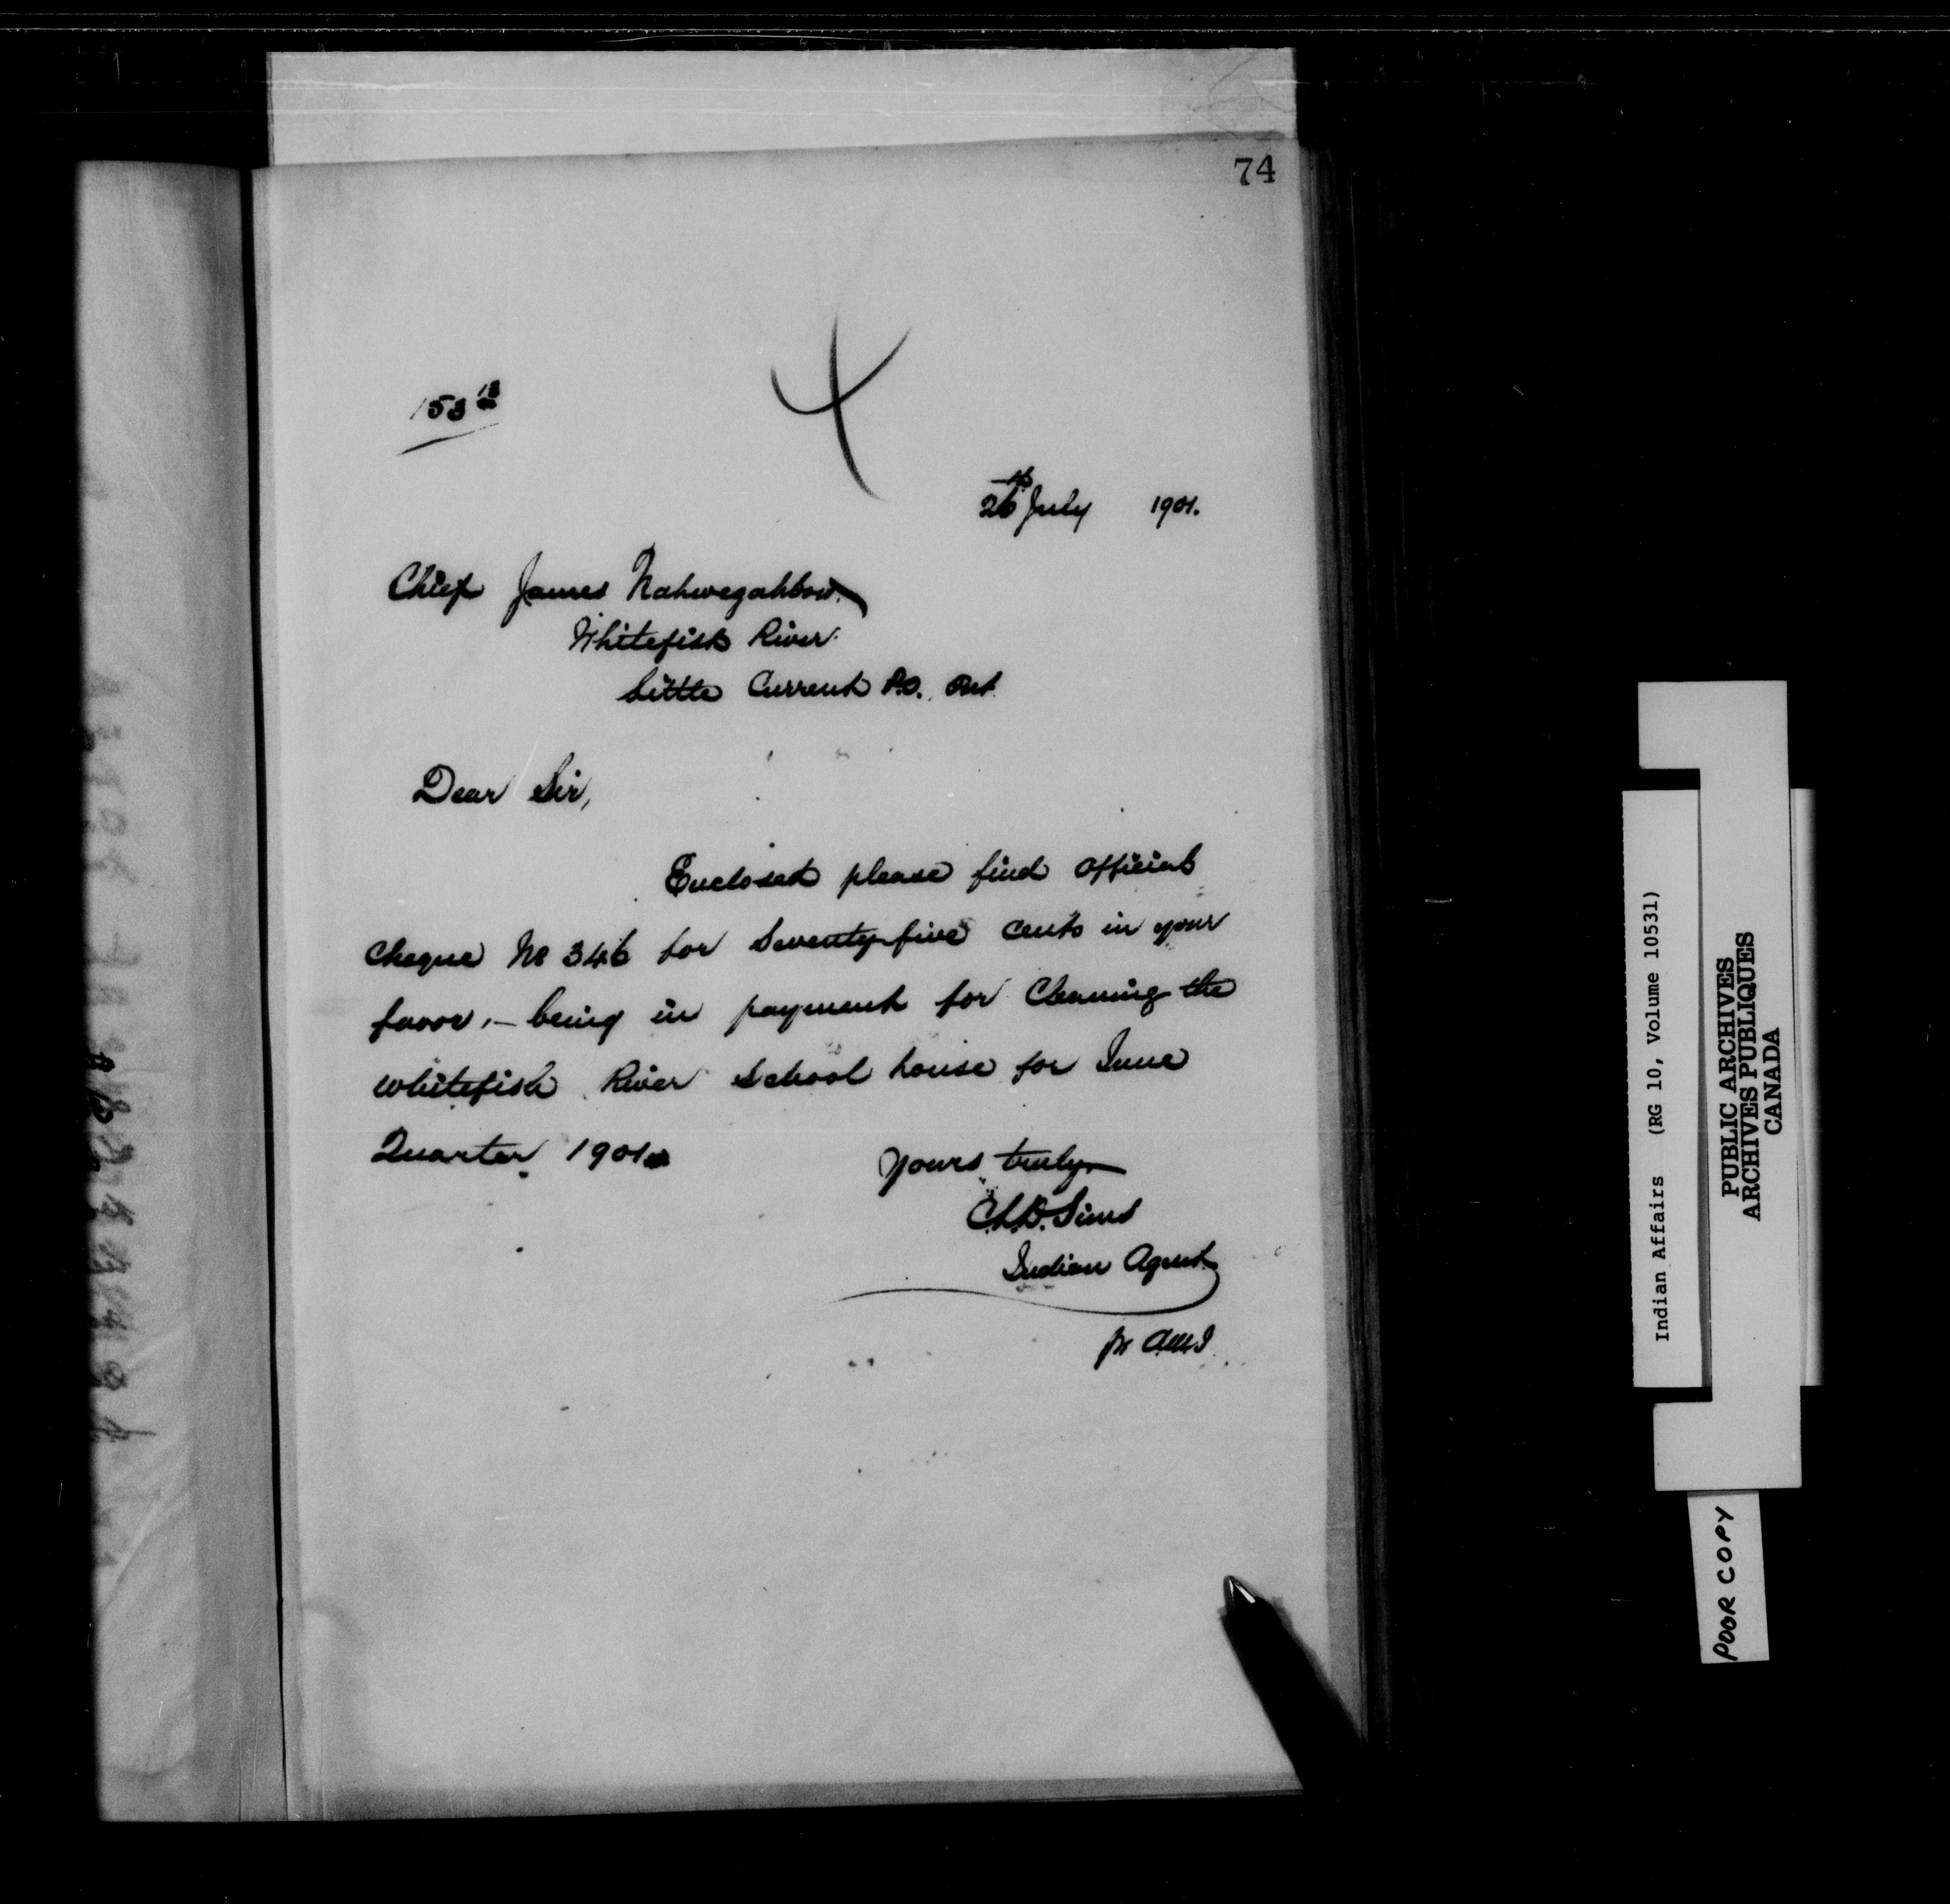 74
153 18
26th July 1901.
Chief James Nahwegahbow.
Whitefish River.
Little Current P.O., Ont.
Dear Sir,
Enclosed please find official
cheque No 346 for Seventy-five cents in your
favor, – being in payment for Cleaning the
Whitefish River School house for June
Quarter 1901.
Yours truly
C.L.D. Sims
Indian Agent
pr
Indian Affairs (RG 10, Volume 10531)
PUBLIC ARCHIVES
ARCHIVES PUBLIQUES
CANADA
POOR COPY